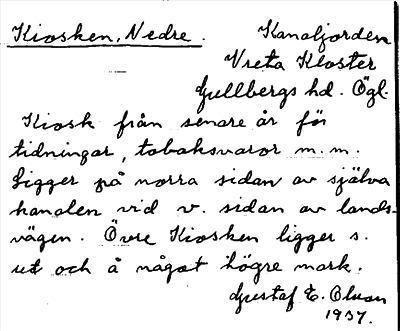 Kiosken, Nedre.
Kanaljorden
Vreta Kloster
Gullbergs hd. Ögl.
Kiosk från senare år för
tidningar, tobaksvaror m.m.
Ligger på norra sidan av själva
kanalen vid v. sidan av lands-
vägen. Övre Kiosken ligger s.
ut och å något högre mark.
Gustaf E. Olsson
1937.